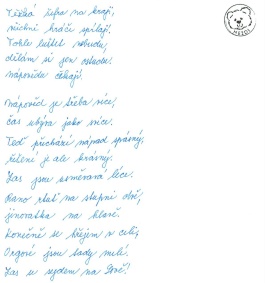 Těžká šifra na kraji,
všichni hráči spílají.
Tohle luštit nebudu,
dělám si jen ostudu.
Nápovědu čekají.
Nápověd je třeba více,
čas ubývá jako svíce.
Teď přichází nápad správný,
řešení je ale krásný.
Zas jsou usměvavá líce.
Ráno stát na stupni obrů,
jinovatka na hlavě.
Konečně se břejem v celi,
Orgové jsou tady milí.
Zas se sejdem na Dně!
MEDOI